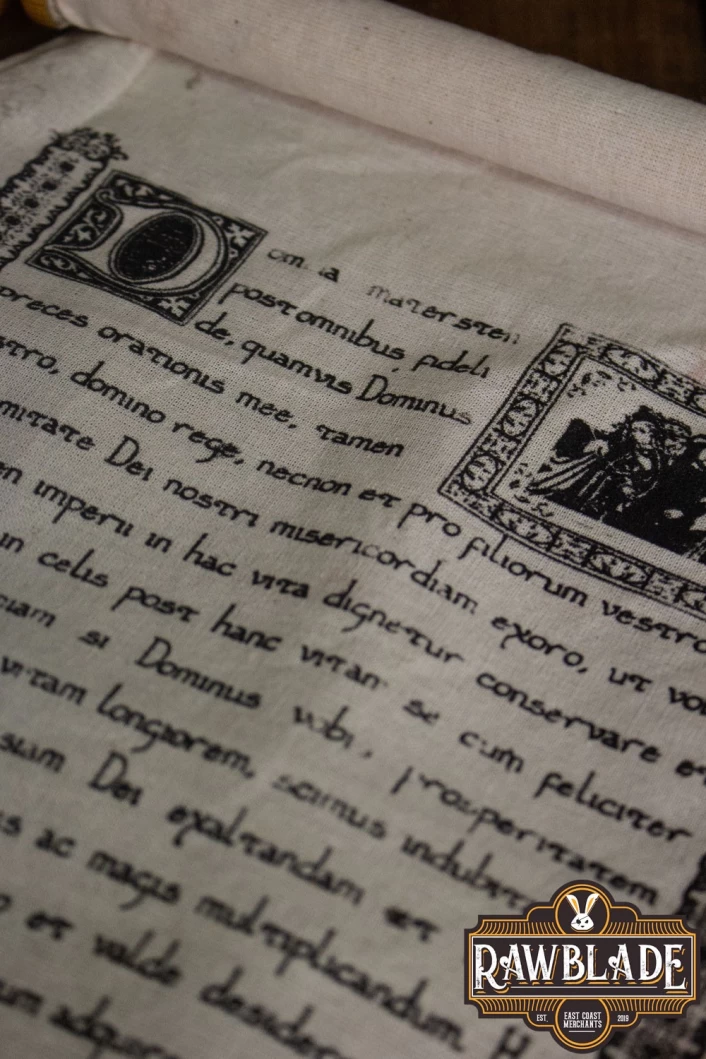 D
post omnibus fideli
de, quamvis Dominus
preces orationis mee, tamen
stro, domino rege, necnon et pro filiorum vestro
mitate Dei nostri misericordiam exoro, ut vo
en imperii in hac vita dignetur conservare et
in celis post hanc vitam se cum feliciter
ciam si Dominus vobi, prosperitatem
vitam longiorem, scimus indubit
siam Dei exaltandam et
s ac magis multiplicandum. H
o et valde desider
um adquire
RAWBLADE
EST. EAST COAST 2019
MERCHANTS